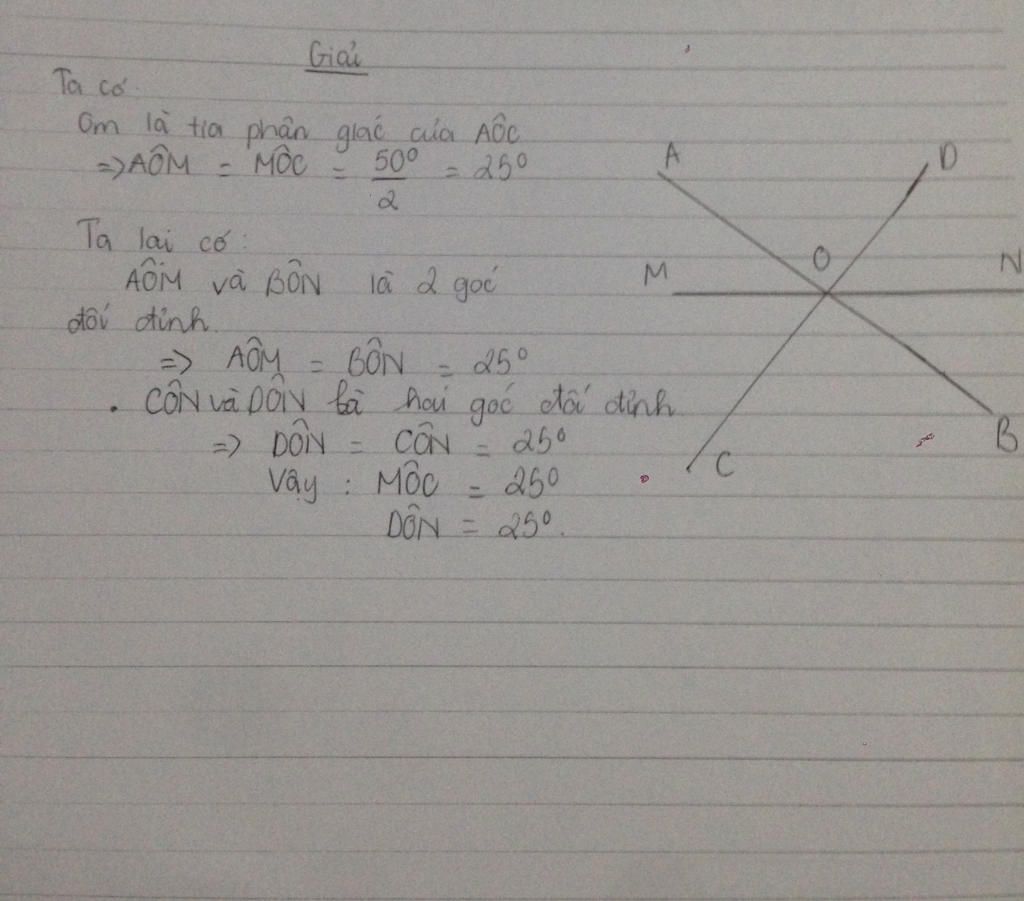 Giải
Ta có
Om là tia phân giác của AÔC
=> AÔM = MÔC = 50°/2 = 25°
Ta lại có:
AÔM và BÔN là 2 góc
đối đỉnh.
=> AÔM = BÔN = 25°
. CÔN và DÔN là hai góc đối đỉnh
=> DÔN = CÔN = 25°
Vậy : MÔC = 25°
DÔN = 25°.
A
D
O
M
N
B
C